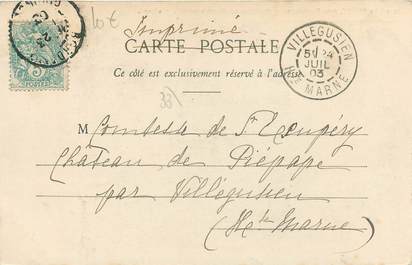 Imprimé
CARTE POSTALE
Ce côté est exclusivement réservé à l'adresse
VILLEGUSIEN
5 24
JUIL
03
Hte MARNE
M Comtesse de St Exupéry
Château de Piépape
par Villegusien
(Hte Marne)